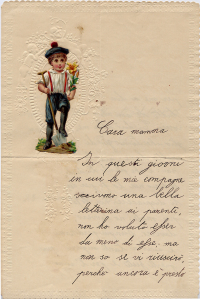 Cara mamma
In questi giorni
in cui le mie compagne
scrivono una bella
letterina ai parenti,
non ho voluto esser
da meno di esse, ma
non so se vi riuscirò,
perchè ancora è presto